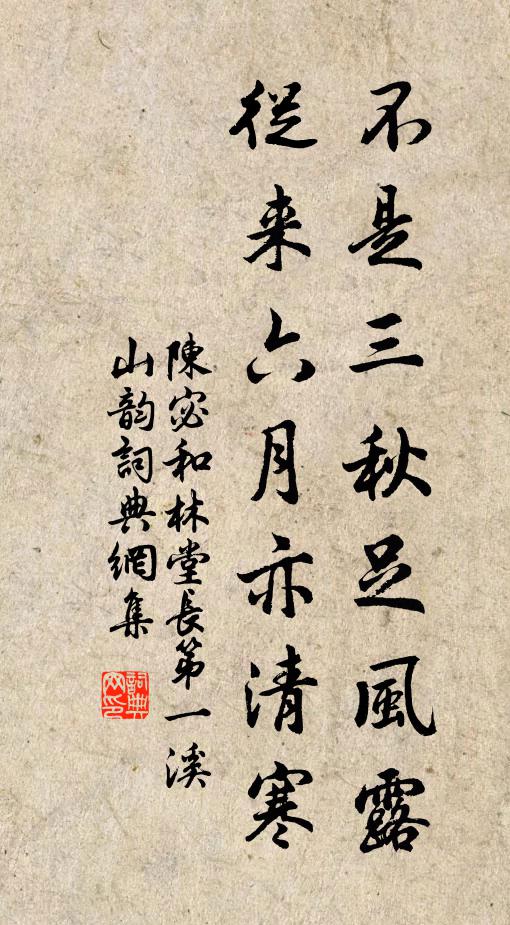 不是三秋足風露
從来六月亦清寒
陳宓和林堂長第一溪
山韵詞典網集
詞典網印